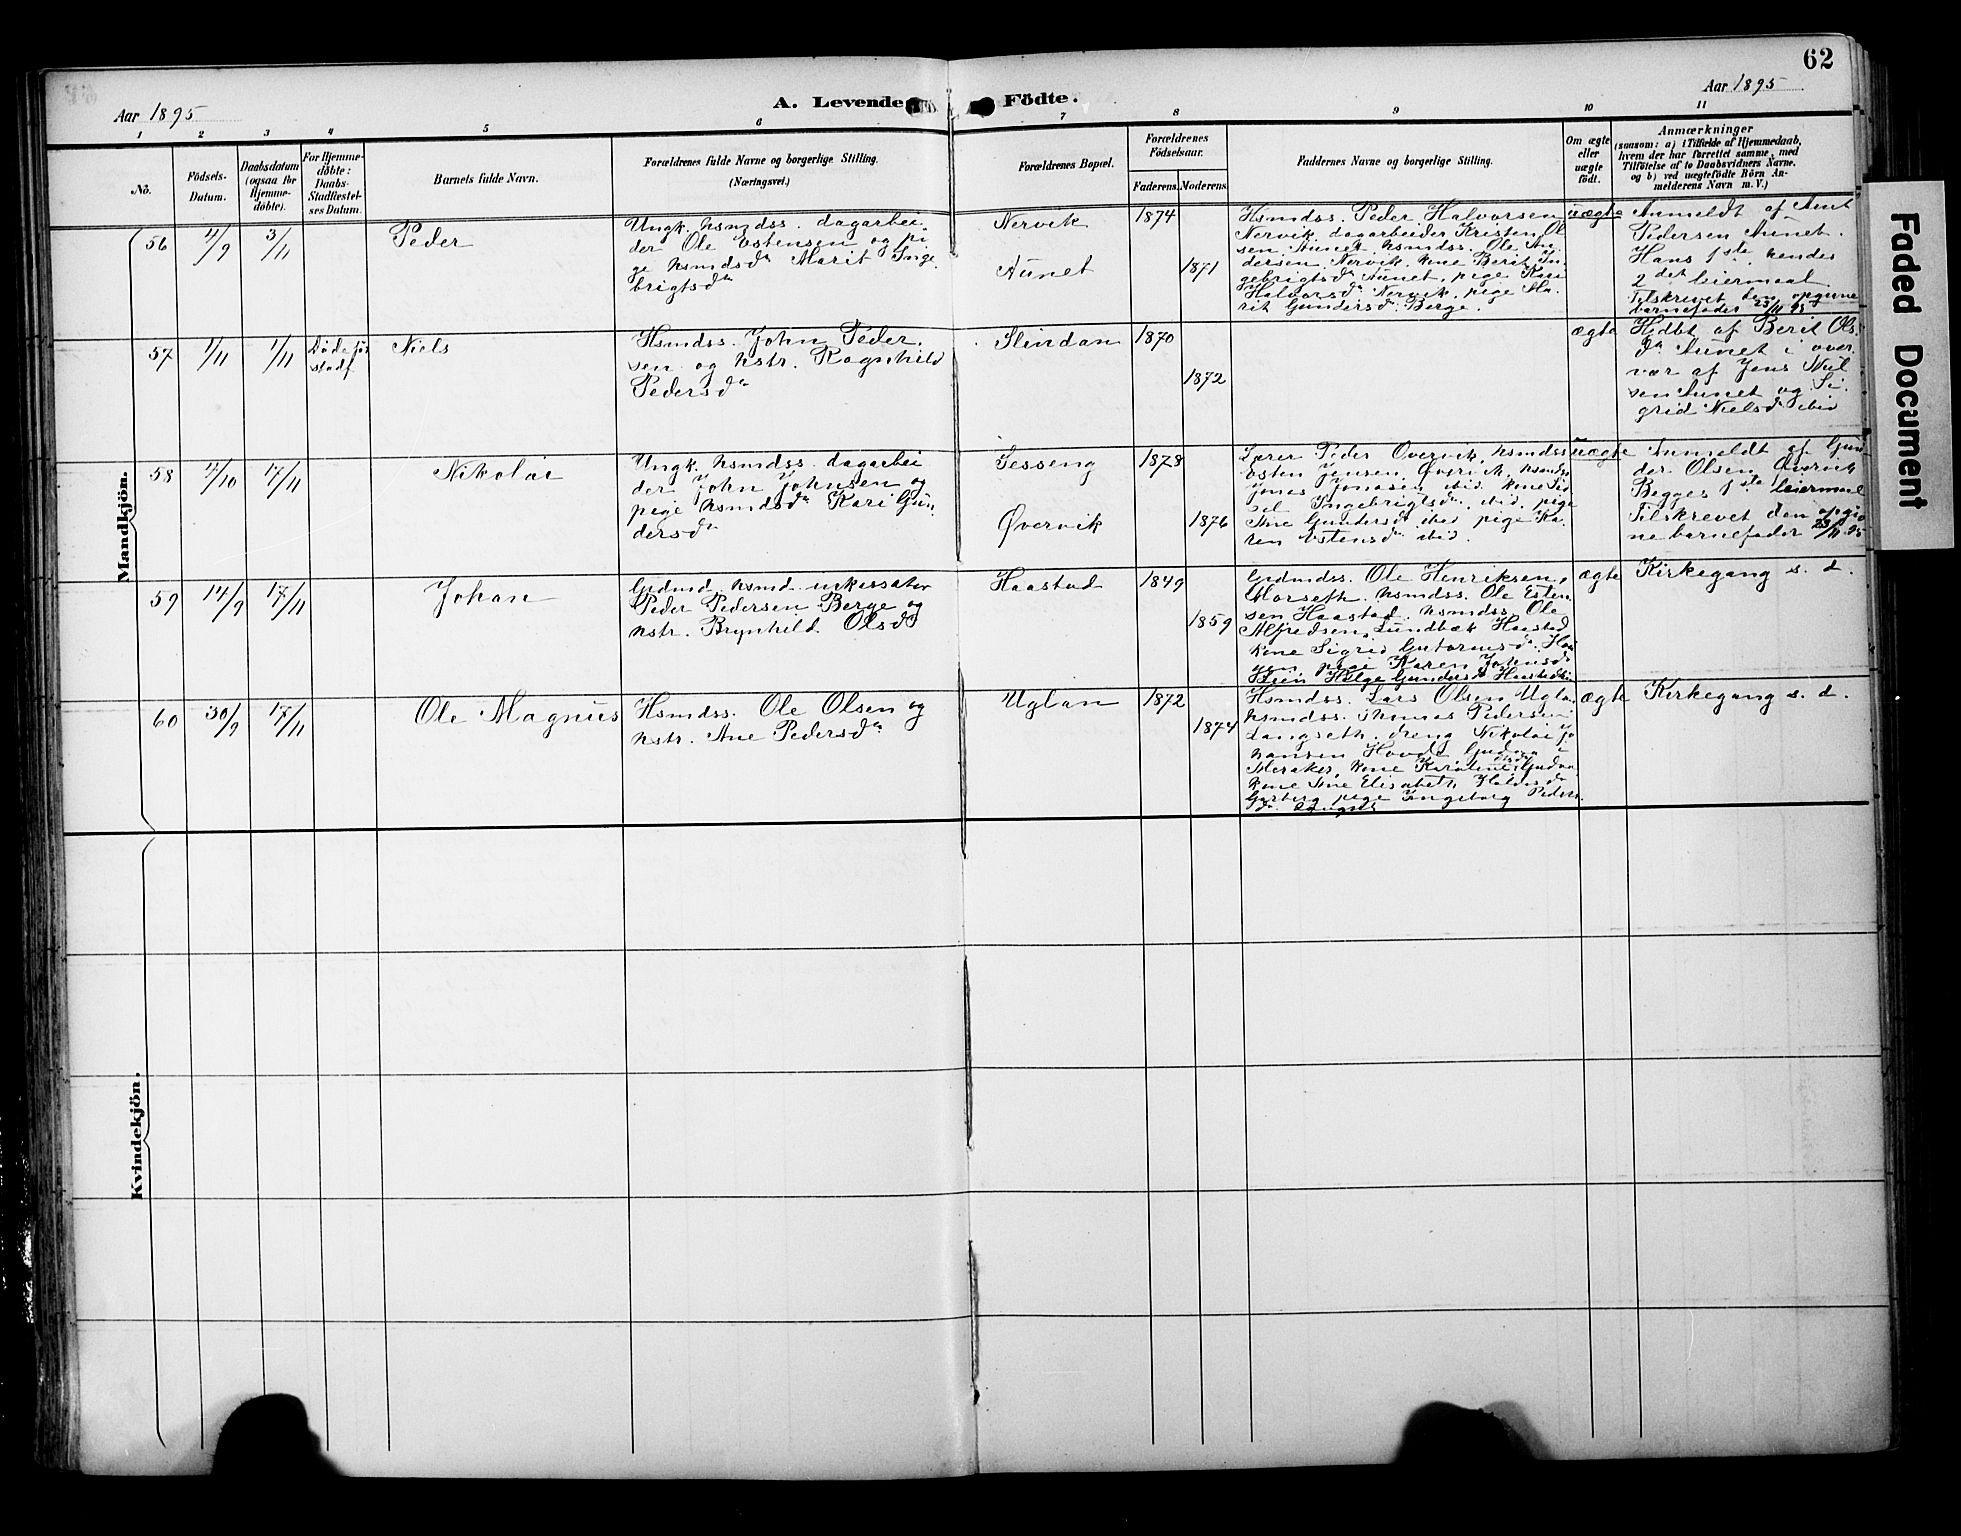 62
Aar 1895
A. Levende Födte.
Aar 1895
1 2 3 4 5 6 7 8 9 10 11
No.
Födsels-
Datum.
Daabsdatum
(ogsaa for
Hjemme-
döbte).
For Hjemme-
döbte:
Daabs-
Stadfæstel-
ses Datum.
Barnets fulde Navn.
Forældrenes fulde Navne og borgerlige Stilling.
(Næringsvei.)
Forældrenes Bopæl.
Forældrenes
Födselsaar.
Faderens. Moderens.
Faddernes Navne og borgerlige Stilling.
Om ægte
eller
uægte
födt.
Anmærkninger
(saasom: a) i Tilfælde af Hjemmedaab,
hvem der har forrettet samme, med
Tilföielse af to Daabsvidners Navne,
og b) ved uægtefödte Börn An-
melderens Navn m. V.)
Mandkjön.
56
4/9
3/11
Peder
Ungk. hsmdss. dagarbei
der Ole Estensen og pi
ge hsmdsdr Marit Inge
brigtsdr
Nervik
Aunet
1874
1871
Hsmdss. Peder Halvorsen
Nervik, dagarbeider Kristen Ol
sen Aunet hsmdss. Ole An
dersen Nervik, kone Berit In
gebrigtsdr Aunet, pige Kari
Halvorsdr Nervik, pige Ma
rit Gundersdr Berge.
uægte
Anmeldt af Arnt
Pedersen Aunet.
Hans 1ste, hendes
2det leiermaal
Tilskrevet den opgivne
barnefader 23/11 95
57
1/11
1/11
Döde för
stadf.
Niels
Hsmdss. John Peder
sen og hstr. Ragnhild
Pedersdr
Slindan
1870
1872
ægte
Hjdbt af Berit Ols
dr Aunet i over
vær af Jens Niel
sen Aunet og Si
grid Nielsdr ibid
58
4/10
17/11
Nikolai
Ungk. hsmdss. dagarbei
der John Johnsen og
pige hsmdsdr Kari Gun
dersdr
Sesseng
Øvervik
1873
1876
Lærer Peder Øvervik, hsmdss
Esten Jensen Øvervik, hsmdss
Jonas Jonasen ibid, kone Sid
sel Ingebrigtsdr ibid, pige
Ane Gundersdr ibid pige Ka
ren Estensdr ibid.
uægte
Anmeldt af Gun
der Olsen Øvervik
Begges 1ste leiermaal
Tilskrevet den opgiv
ne barnefader 23/11 95
59
14/9
17/11
Johan
Grdmd. hsmd.
Peder Pedersen Berge og
hstr. Brynhild Olsdr
Haastad
1849
1859
Grdmdss. Ole Henriksen,
Morseth, hsmdss. Ole Esten
sen Haastad, hsmdss. Ole
Alfredsen Lundbæk Haastad
kone Sigrid Hau
gen, pige Karen Johnsdr
Helge Gundersdr
ægte
Kirkegang s. d.
60
30/9
17/11
Ole Magnus
Hsmdss. Ole Olsen og
hstr. Ane Pedersdr
Uglan
1872
1874
Hsmdss. Lars Olsen Uglan
hsmdss. Thomas Pedersen
Langseth, dreng Nikolai Jo
hansen
Meraker, kone Karoline
kone Ane Elisabeth
pige Ingeborg Peders
dr
ægte
Kirkegang s. d.
Kvindekjön.
Faded Document